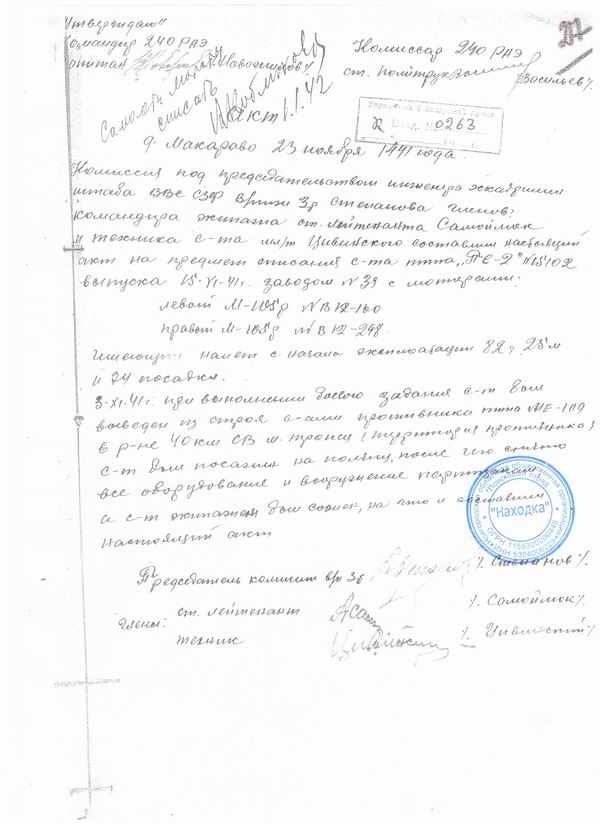 Утверждаю"
Командир 240 РАЭ
Комиссар 240 РАЭ
ст. политрук Васильев/.
Самолёт Списать
1.1.42
Акт
№ 0263
д. Макарово 23 ноября 1941 года.
Комиссия под председательством инженера эскадрилии
штаба ВВС СЗФ Вр Степанова членов:
командира экипажа ст. лейтенанта Самойлюк
и техника с-та Цивинского составили настоящий
акт на предмет списания с-та типа „ПЕ-2" №15/02
выпуска 15-VI-41г. заводом №39 с моторами:
левый М-105р №В12-160
правый М-105р №В12-248
имеющий налет с начала эксплоатации 82ч. 25м
и 74 посадки.
3-XI-41г. при выполнении боевого задания с-т был
выведен из строя с-ами противника типа МЕ-109
в р-не 40км СВ (территория противника)
с-т был посажен на поляну, после чего снято
все оборудование и вооружение партизанам
а с-т экипажем был сожжен, на что и составили
настоящий акт
"Находка"
Председатель комиссии /. Степанов /.
члены: ст. лейтенант /. Самойлюк/.
техник /. Цивинский/.